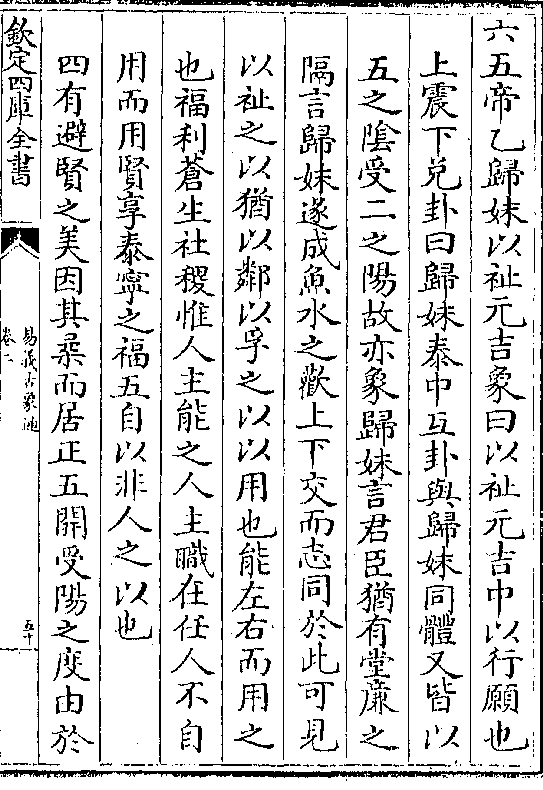 六五帝乙歸妹以祉元吉象曰以祉元吉中以行願也
上震下兑卦曰歸妹泰中互卦與歸妹同體又皆以
五之陰受二之陽故亦象歸妹言君臣猶有堂廉之
隔言歸妹遂成魚水之歡上下交而志同於此可見
以祉之以猶以鄰以孚之以以用也能左右而用之
也福利蒼生社稷惟人主能之人主職在任人不自
用而用賢享泰寧之福五自以非人之以也
四有避賢之美因其柔而居正五開受陽之度由於
欽定四庫全書
易義古象通
卷二
五十